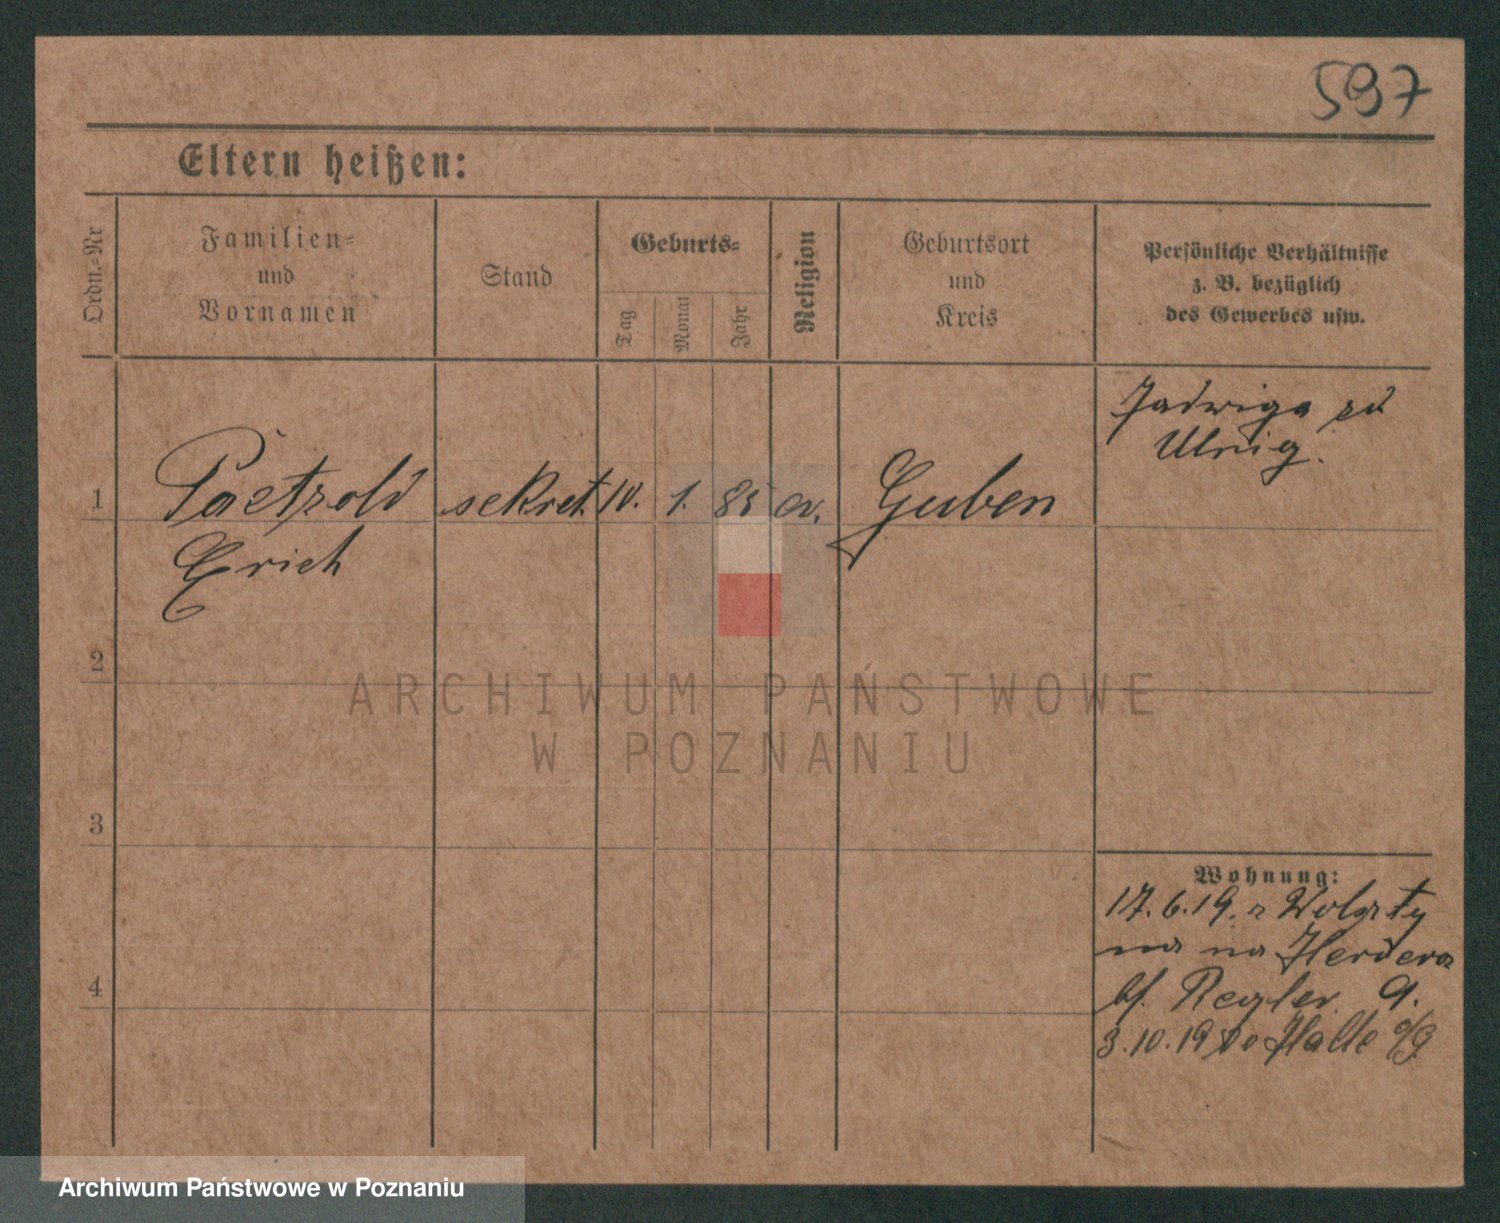 597
Eltern heißen:
Ordn.-Nr
Familien-
und
Vornamen
Stand
Geburts-
Tag
Monat
Jahr
Religion
Geburtsort
und
Kreis
Persönliche Verhältnisse
z. B. bezüglich
des Gewerbes usw.
Jadwiga zd
Ulrig.
1 Paetzold sekret. 10. 1. 85 ev. Guben
Erich
2
ARCHIWUM PAŃSTWOWE
W POZNANIU
3
Wohnung:
17.6.19. z
na
4
Regler 9.
3.10.19 do Halle
Archiwum Państwowe w Poznaniu